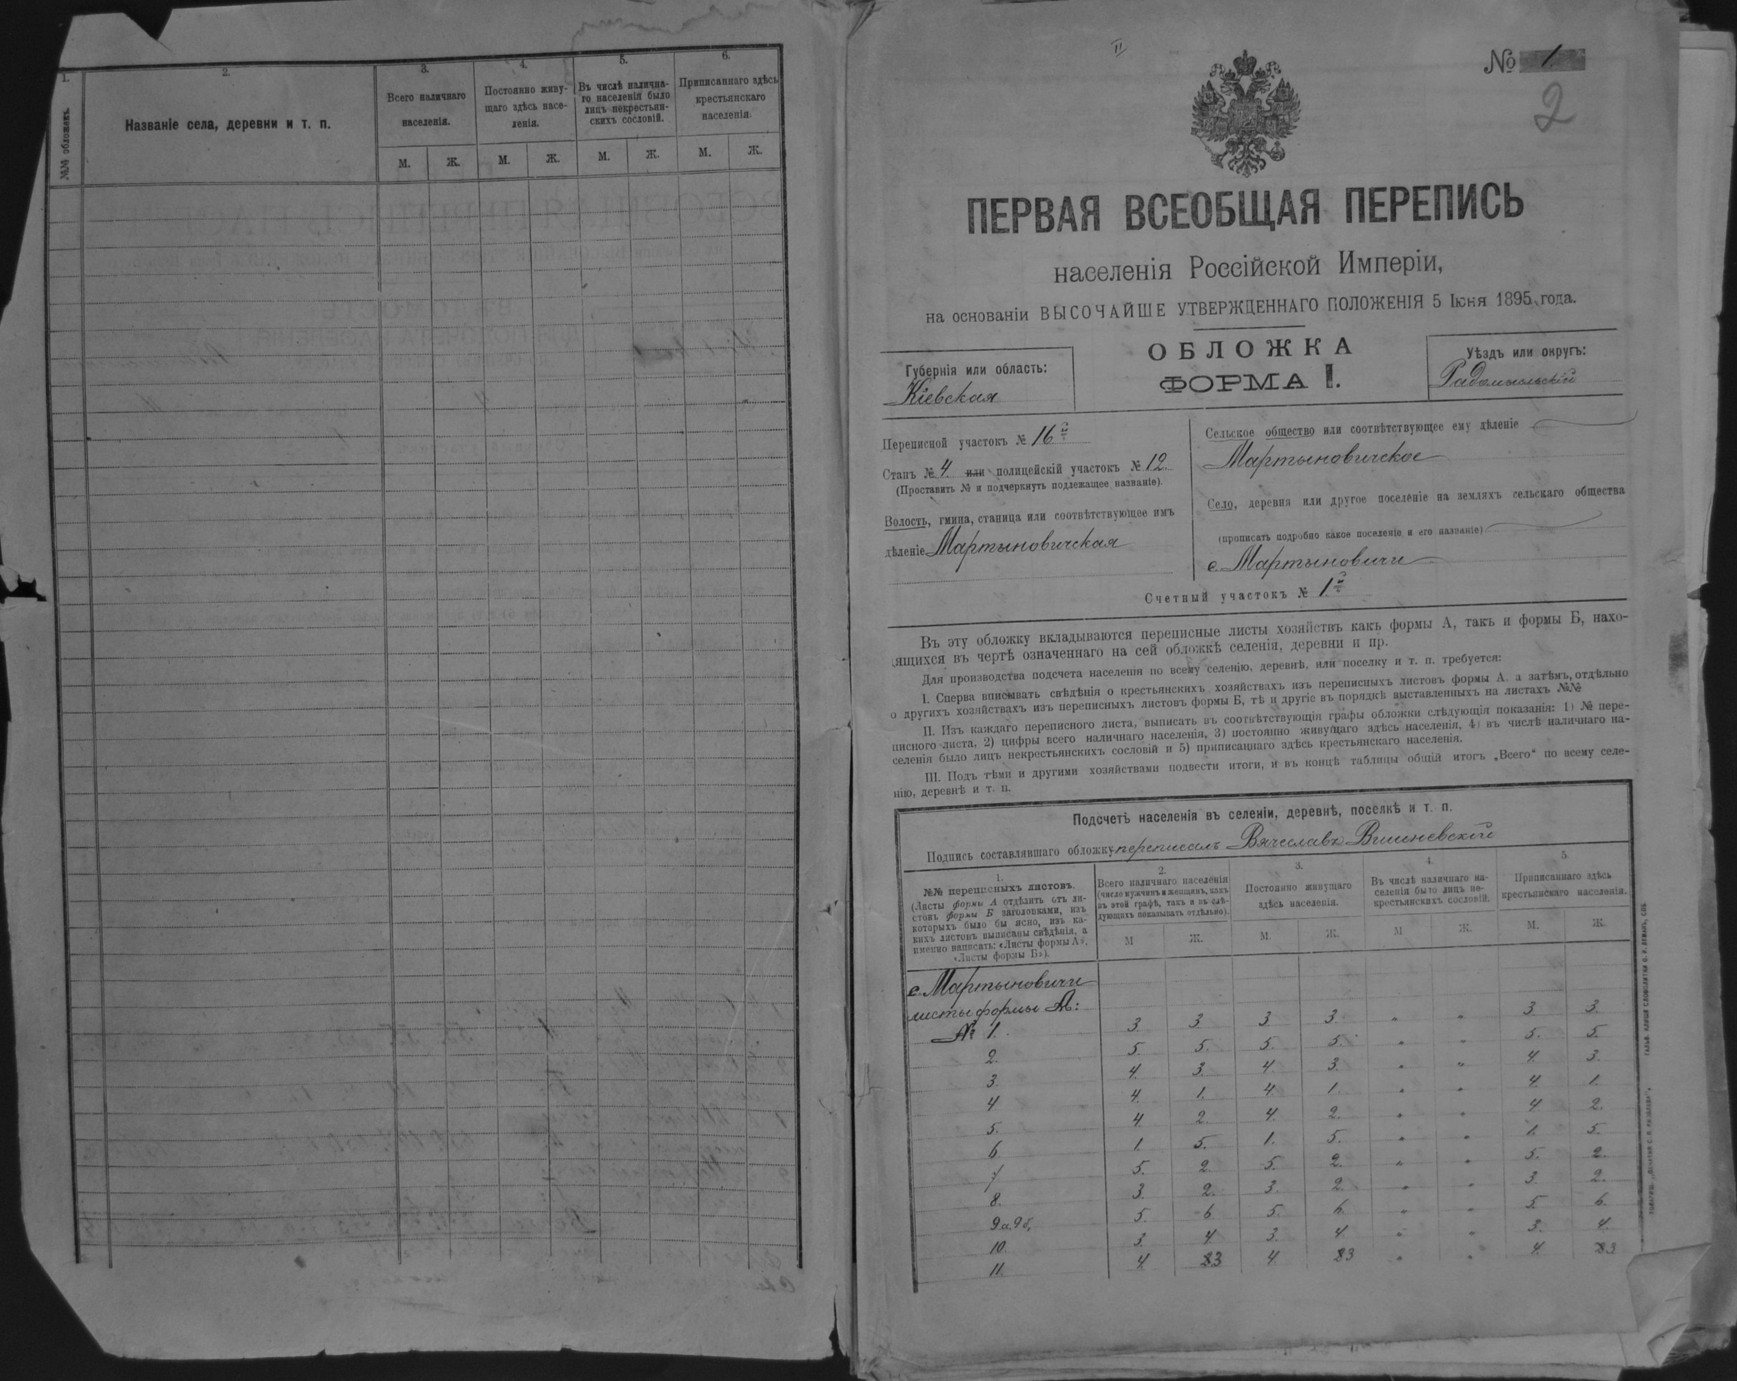 1.
2.
3.
4.
5.
6.
№№ обложекъ.
Названіе села, деревни и т. п.
Всего наличнаго
населенія.
Постоянно живу-
щаго здѣсь насе-
ленія.
Въ числѣ налична-
го населенія было
лицъ некрестьян-
скихъ сословій.
Приписаннаго здѣсь
крестьянскаго
населенія.
М. Ж. М. Ж. М. Ж. М. Ж.
№ 1
2
ПЕРВАЯ ВСЕОБЩАЯ ПЕРЕПИСЬ
населенія Россійской Имперіи,
на основаніи ВЫСОЧАЙШЕ УТВЕРЖДЕННАГО ПОЛОЖЕНІЯ 5 Іюня 1895 года.
ОБЛОЖКА
ФОРМА I.
Губернія или область:
Кіевская
Уѣздъ или округъ:
Радомысльскій
Переписной участокъ № 16й
Станъ № 4 или полицейскій участокъ № 12.
(Проставить № и подчеркнуть подлежащее названіе).
Волость, гмина, станица или соотвѣтствующее имъ
дѣленіе Мартыновичская
Сельское общество или соотвѣтствующее ему дѣленіе
Мартыновичское
Село, деревня или другое поселеніе на земляхъ сельскаго общества
(прописать подробно какое поселеніе и его названіе)
с. Мартыновичи
Счетный участокъ № 1й
Въ эту обложку вкладываются переписные листы хозяйствъ какъ формы А, такъ и формы Б, нахо-
дящихся въ чертѣ означеннаго на сей обложкѣ селенія, деревни и пр.
Для производства подсчета населенія по всему селенію, деревнѣ, или поселку и т. п. требуется:
I. Сперва вписывать свѣдѣнія о крестьянскихъ хозяйствахъ изъ переписныхъ листовъ формы А. а затѣмъ, отдѣльно
о другихъ хозяйствахъ изъ переписныхъ листовъ формы Б, тѣ и другіе въ порядкѣ выставленныхъ на листахъ №№
II. Изъ каждаго переписного листа, выписать въ соотвѣтствующія графы обложки слѣдующія показанія: 1) № пере-
писного листа, 2) цифры всего наличнаго населенія, 3) постоянно живущаго здѣсь населенія, 4) въ числѣ наличнаго на-
селенія было лицъ некрестьянскихъ сословій и 5) приписаннаго здѣсь крестьянскаго населенія.
III. Подъ тѣми и другими хозяйствами подвести итоги, и въ концѣ таблицы общій итогъ „Всего“ по всему селе-
нію, деревнѣ и т. п.
Подсчетъ населенія въ селеніи, деревнѣ, поселкѣ и т. п.
Подпись составлявшаго обложку переписалъ Вячеславъ Вишневскій
1.
№№ переписныхъ листовъ.
(Листы формы А отдѣлить отъ ли-
стовъ формы Б заголовками, изъ
которыхъ было бы ясно, изъ ка-
кихъ листовъ выписаны свѣдѣнія, а
именно написать: «Листы формы А»,
«Листы формы Б»).
2.
Всего наличнаго населенія
(число мужчинъ и женщинъ, какъ
въ этой графѣ, такъ и въ слѣ-
дующихъ показывать отдѣльно).
3.
Постоянно живущаго
здѣсь населенія.
4.
Въ числѣ наличнаго на-
селенія было лицъ не-
крестьянскихъ сословій.
5.
Приписаннаго здѣсь
крестьянскаго населенія.
М Ж. М. Ж. М Ж. М. Ж.
с. Мартыновичи
листы формы А:
№ 1. 3. 3. 3 3. " " 3 3.
2. 5. 5. 5. 5. " " 5. 5.
3. 4. 3. 4. 3. " " 4. 3.
4 4. 1. 4. 1. " " 4. 1.
5. 4. 2. 4. 2. " " 4 2.
6 1. 5. 1. 5. " " 1. 5.
7 5. 2 5. 2. " " 5. 2.
8. 3. 2. 3. 2. " " 3. 2.
9а.9б. 5. 6. 5. 6. " " 5. 6.
10. 3. 4 3. 4 " " 3. 4.
11. 4 3 4 3 " " 4. 3